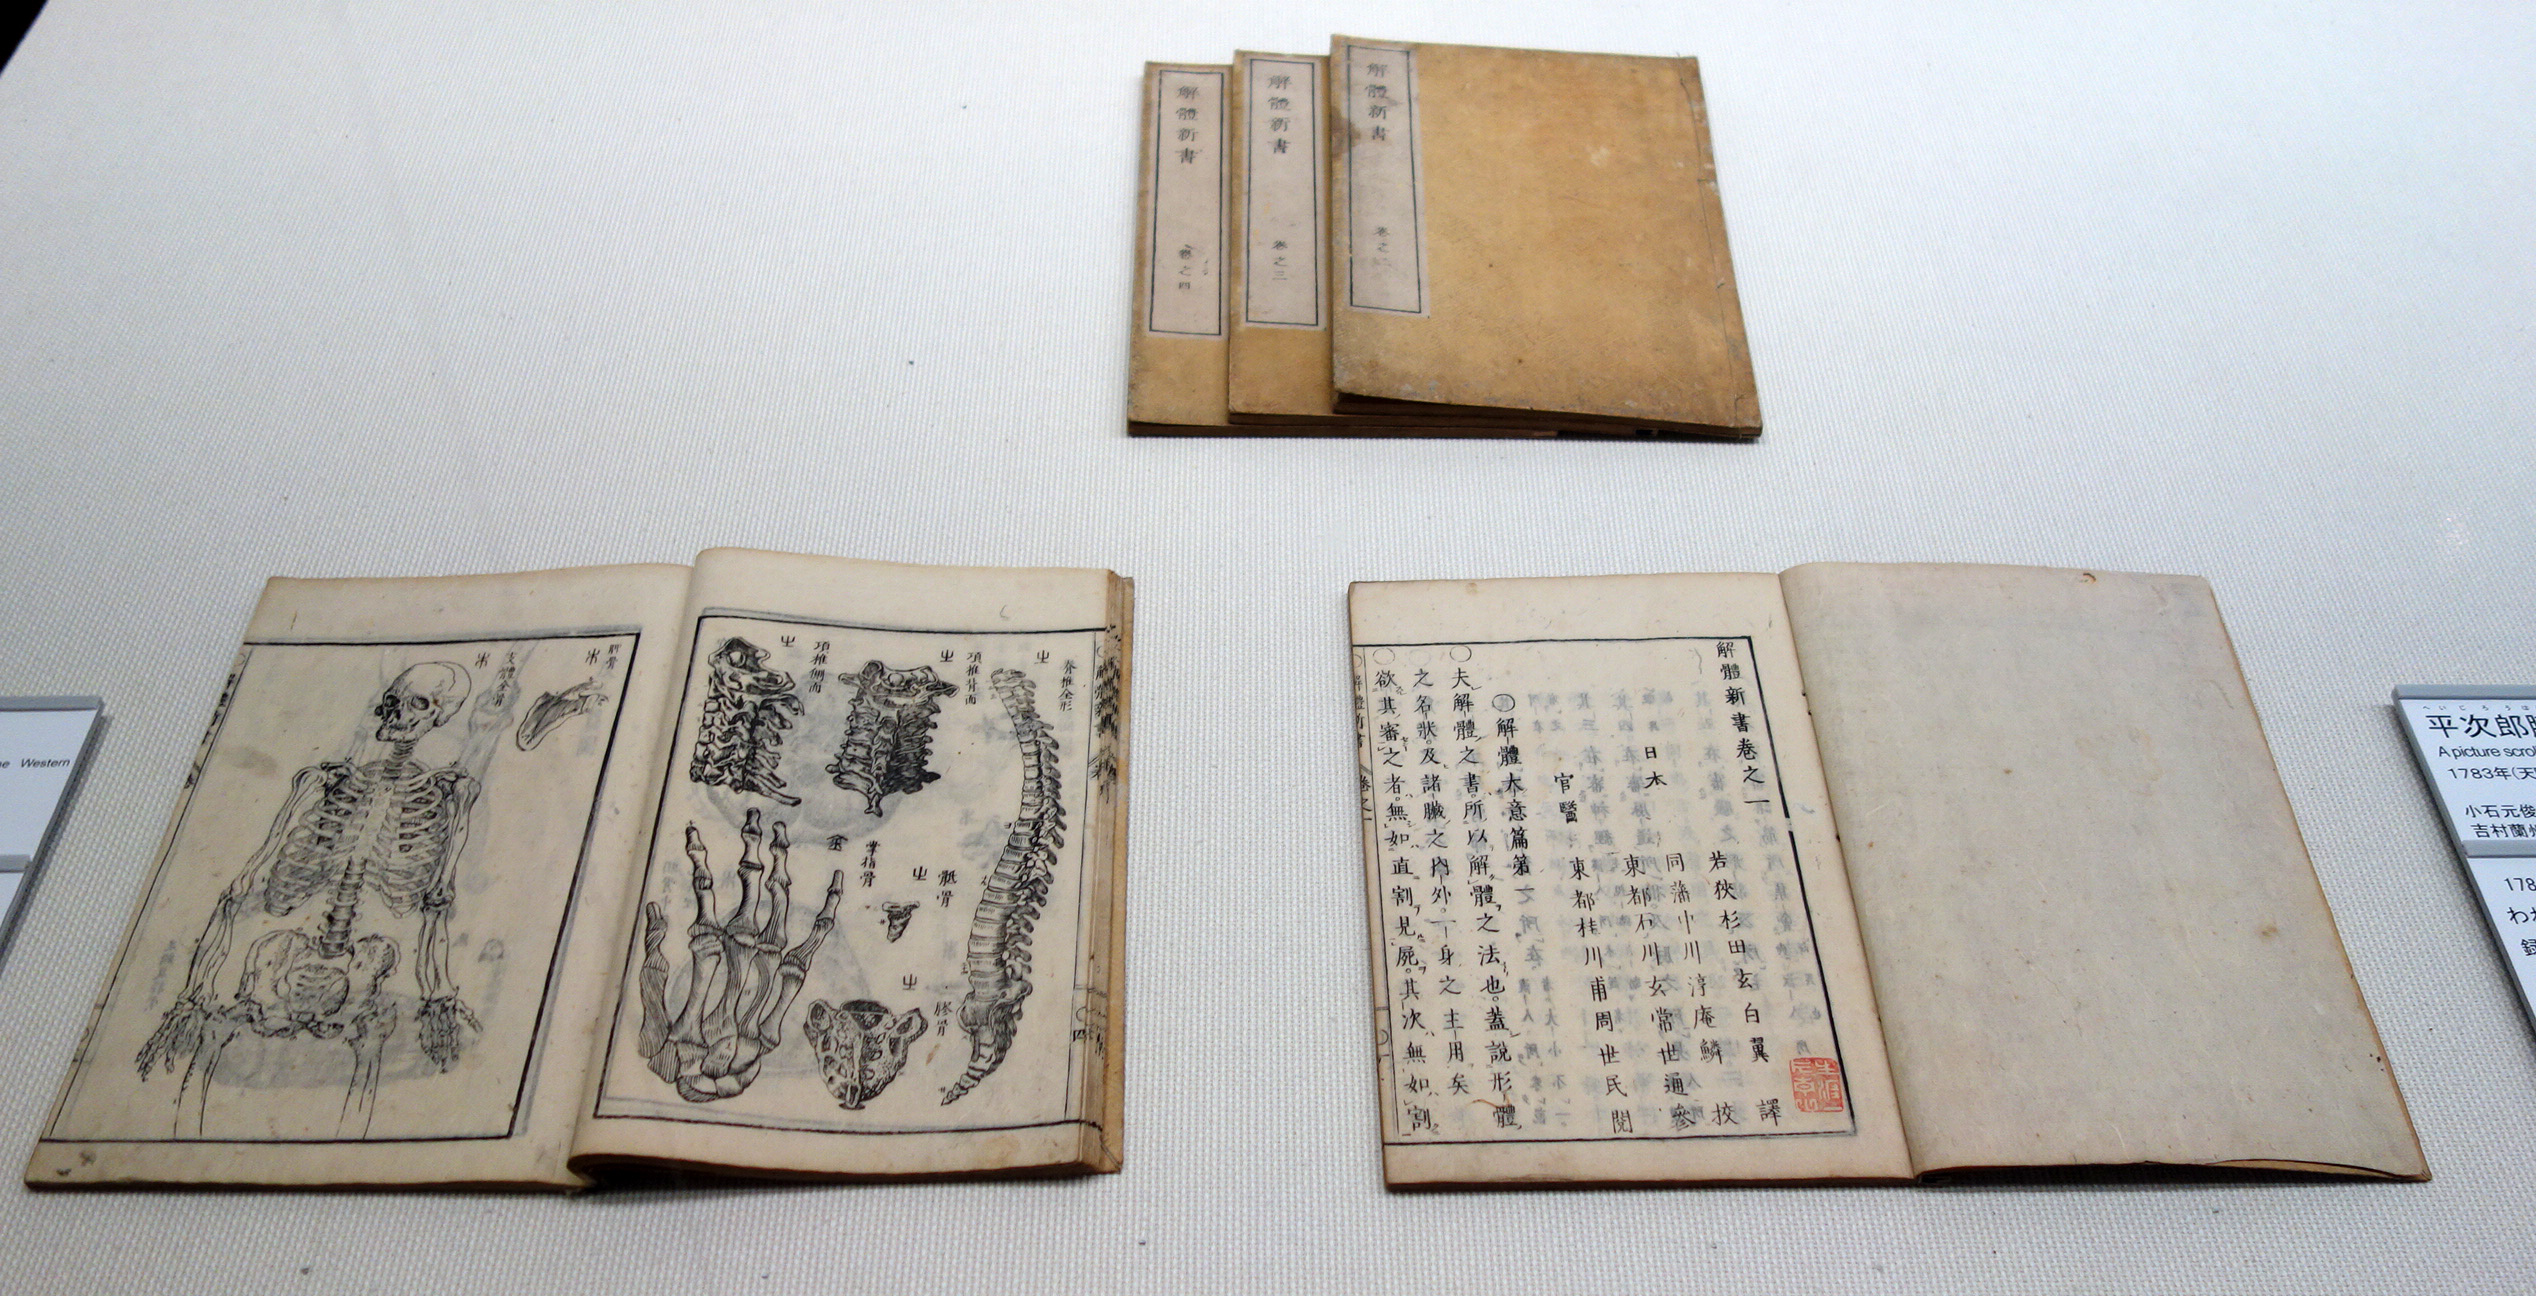 解體新書
卷之四
解體新書
卷之三
解體新書
卷之二
脊椎全形
項椎背面
項椎側面
骶骨
掌指骨
支體全骨
解體新書卷之一
若狹 杉田玄白翼 譯
日本 同藩 中川淳庵鱗 挍
東都 石川玄常世通 參
官醫 東都 桂川甫周世民 閱
○解體大意篇第一
○夫解體之書所以解體之法也。蓋說形體
之名狀及諸臟之內外一身之主用矣
○欲其審之者。無如直割見屍。其次無如割
e Western
平次郎
A picture scro
1783年(天
小石元俊
吉村蘭
178
わ